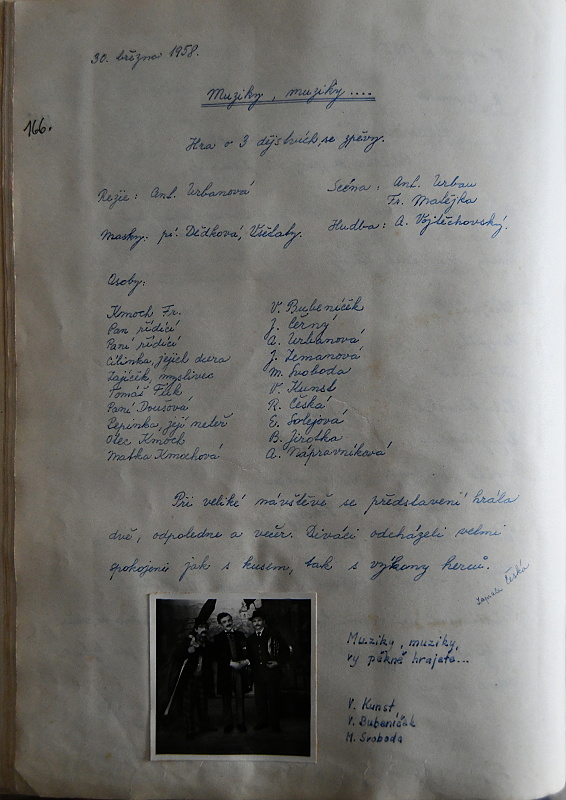 30. března 1958.
Muziky, muziky....
166.
Hra o 3 dějstvích, se zpěvy.
Režie: Ant. Urbanová
Scéna: Ant. Urban
Fr. Matějka
Masky: pí. Dědková, Všetaty.
Hudba: A. Vojtěchovský.
Osoby:
Kmoch Fr. V. Bubeníčík
Pan řídící J. Černý
Paní řídící A. Urbanová
Cilinka, jejich dcera J. Zemanová
Zajíček, myslivec M. Svoboda
Tomáš Flik V. Kunst
Paní Doušová R. Česká
Pepinka, její neteř E. Solejová
Otec Kmoch B. Jirotka
Matka Kmochová A. Nápravníková
Při veliké návštěvě se představení hrála
dvě, odpoledne a večer. Diváci odcházeli velmi
spokojeni jak s kusem, tak s výkony herců.
Česká
Muziko, muziky,
vy pěkně hrajete...
V. Kunst
V. Bubeníčák
M. Svoboda